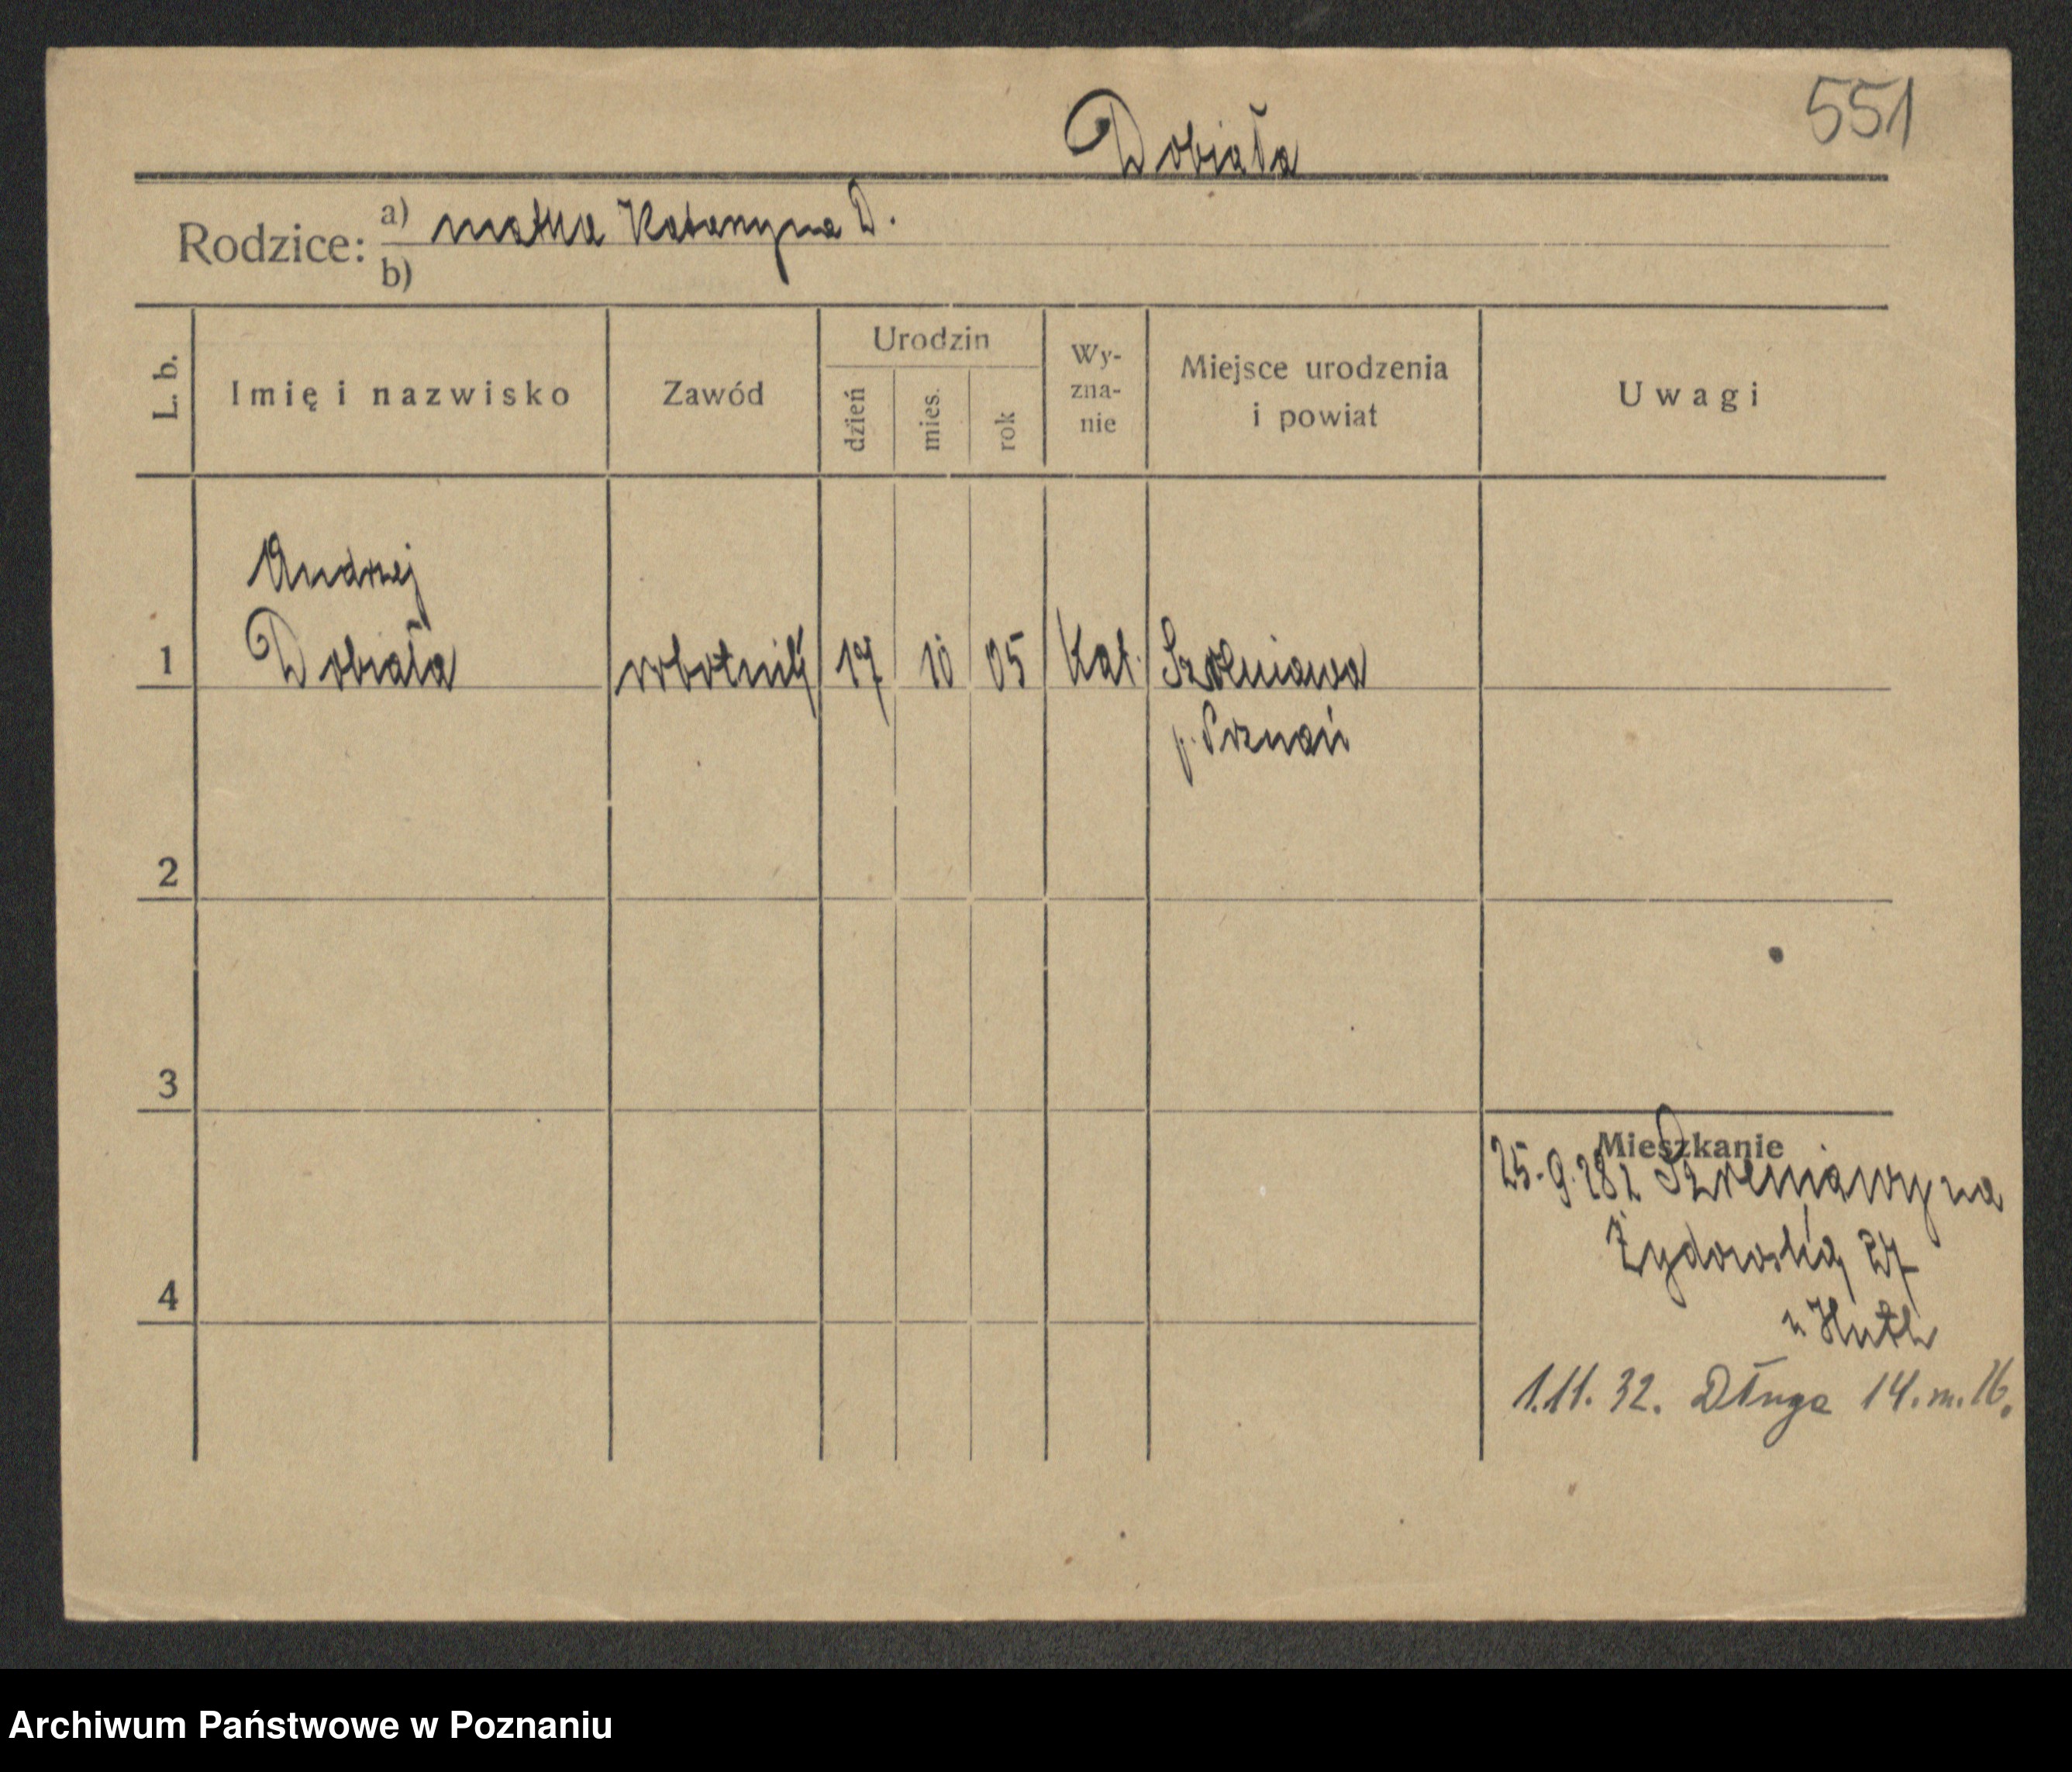 551
Dobiała
Rodzice: a) matka Katarzyna D.
b)
L. b. Imię i nazwisko Zawód Urodzin dzień mies. rok Wy-zna-nie Miejsce urodzenia i powiat Uwagi
Andrzej
1 Dobiała robotnik 17 10 05 Kat. Szreniawa
p. Poznań
2
3
Mieszkanie
25.9.28 z Szreniawy na
Żydowską 27
4
u Huth
1.11.32. Długa 14.m.16.
Archiwum Państwowe w Poznaniu